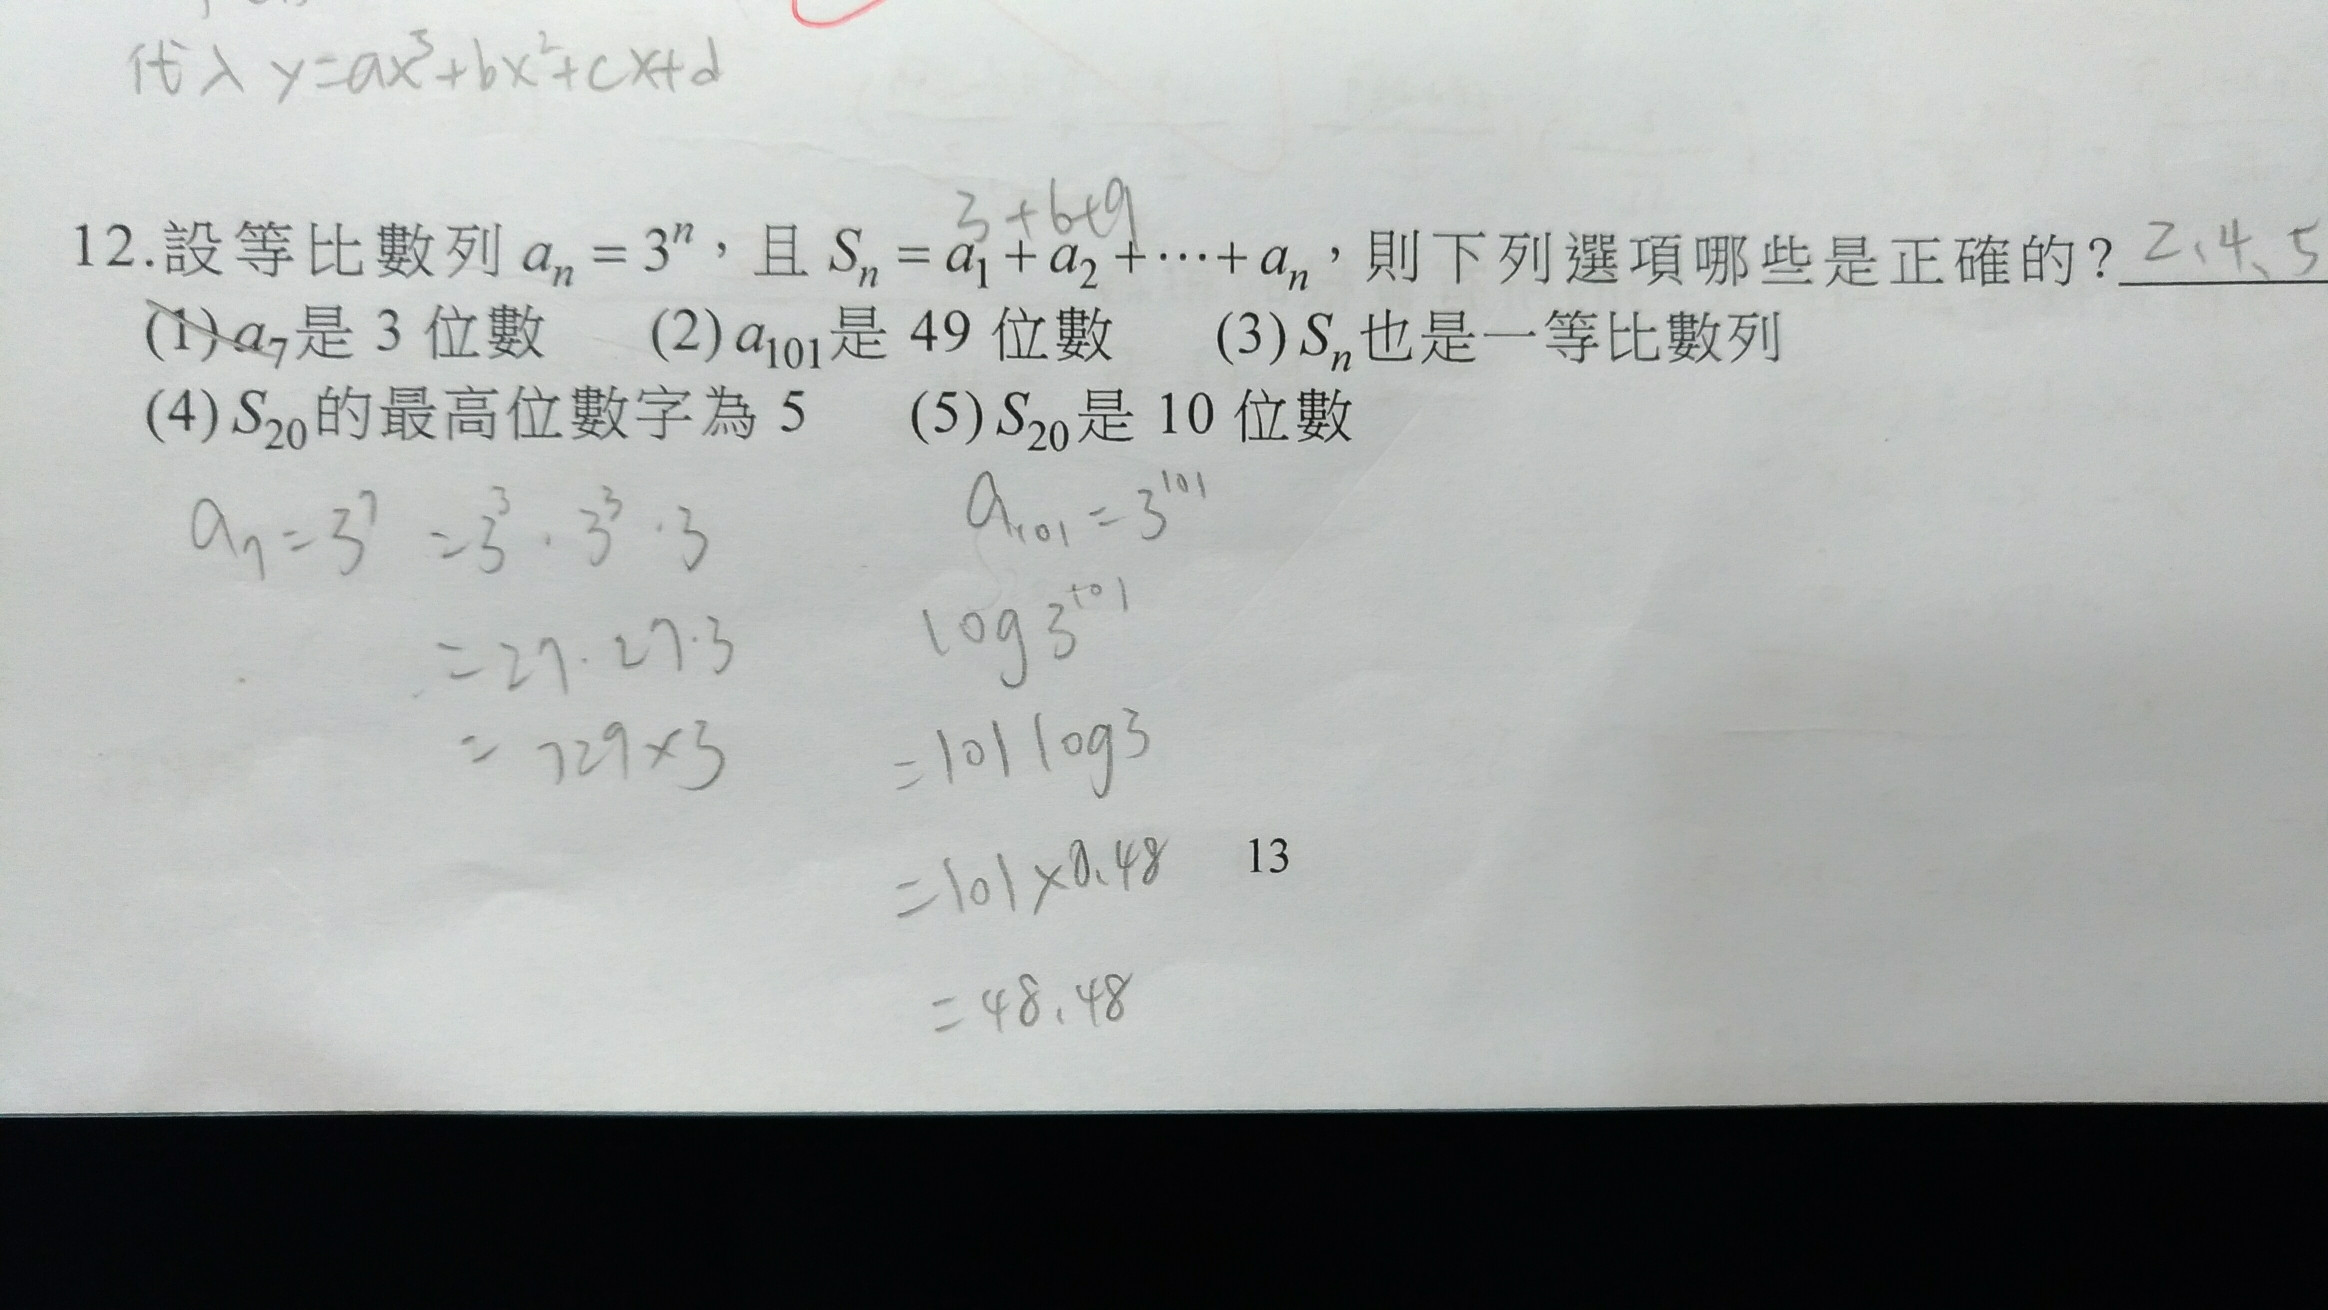 代入 y=ax³+bx²+cx+d
3+6+9
12.設等比數列 aₙ = 3ⁿ，且 Sₙ = a₁ + a₂ + ⋯ + aₙ，則下列選項哪些是正確的? 2、4、5
(1) a₇是 3 位數 (2) a₁₀₁是 49 位數 (3) Sₙ也是一等比數列
(4) S₂₀的最高位數字為 5 (5) S₂₀是 10 位數
a₇=3⁷ =3³·3³·3
=27·27·3
=729×3
a₁₀₁=3¹⁰¹
log3¹⁰¹
=101log3
=101×0.48
=48.48
13